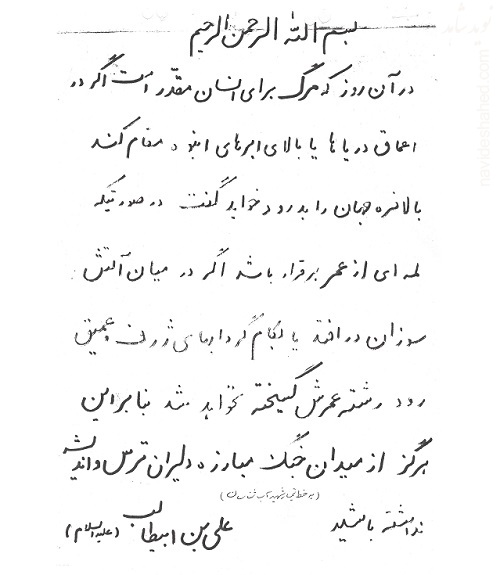 بسم الله الرحمن الرحیم
در آن روز که مرگ برای انسان مقدّر است اگر در
اعماق دریاها یا بالای ابرهای انبوه مقام کند
بالاخره جهان را بدرود خواهد گفت در صورتیکه
لمه ای از عمر برقرار باشد اگر در میان آتش
سوزان در افتد یا بکام گردابهای ژرف و عمیق
رود رشته عمرش گسیخته نخواهد شد بنابراین
هرگز از میدان جنگ مبارزه دلیران ترس و اندیشه
(به خط شهید)
نداشته باشید
علی بن ابیطالب (علیه السلام)
navideshahed.com